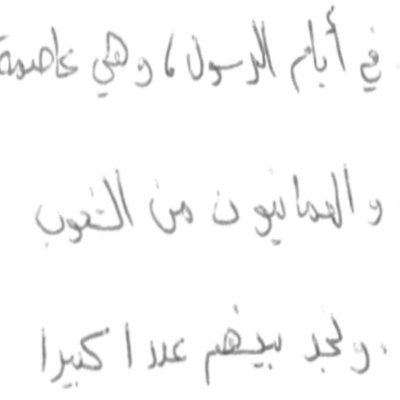 في أيام الرسول، وهي عاصمة
والعمانيون من الشعوب
ونجد بينهم عددا كبيرا